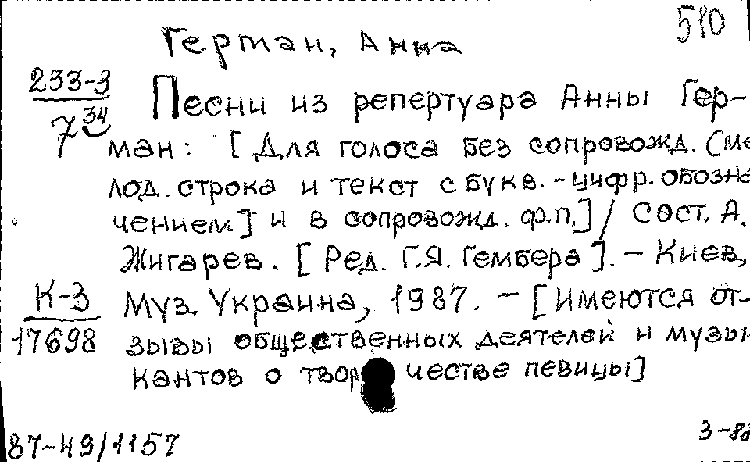 510
Герман, Анна
233-3
7 34
Песни из репертуара Анны Гер-
ман: [Для голоса без сопровожд. (ме
лод. строка и текст с букв.-цифр. обозна
чением] и в сопровожд. ф.п.] / Сост. А.
Жигарев. [Ред. Г.Я. Гембера]. – Киев,
К-3
17698
Муз. Украина, 1987. – [Имеются от-
зывы общественных деятелей и музы
кантов о творчестве певицы]
87-49/1157
3-88